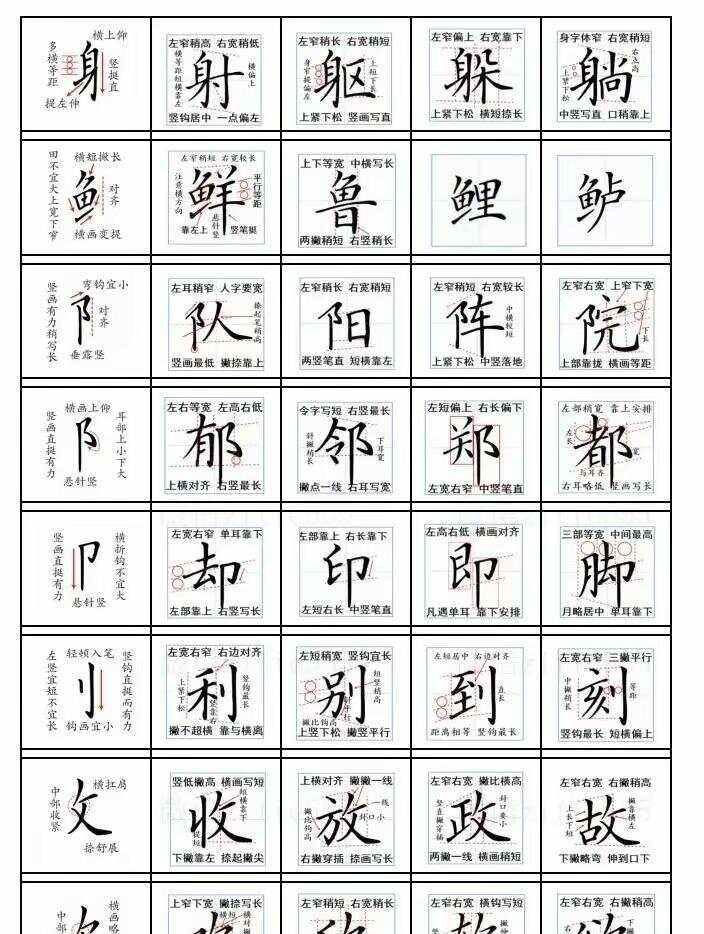 横上仰
多横等距
身
竖挺直
提左伸
左窄稍高 右宽稍低
横等距短横靠左
射
横偏上
竖钩居中 一点偏左
左窄稍长 右宽稍短
身窄提偏左
躯
上短下长
上紧下松 竖画写直
左窄偏上 右宽靠下
躲
上紧下松 横短捺长
身字体窄 右宽稍短
右点高
上紧下松
躺
中竖写直 口稍靠上
田不宜大上宽下窄
横短撇长
对齐
横画变提
左窄稍短 右宽较长
注意横方向
鲜
平行等距
悬针竖
靠左上
竖笔挺
上下等宽 中横写长
鲁
两撇稍短 右竖稍长
鲤
鲈
竖画有力稍写长
弯钩宜小
阝
对齐
垂露竖
左耳稍窄 人字要宽
队
捺起笔稍高
竖画最低 撇捺靠上
左窄稍长 右宽稍短
阳
两竖笔直 短横靠左
左窄稍短 右宽较长
阵
中横较短
上紧下松 中竖落地
左窄右宽 上窄下宽
院
下长
上部靠拢 横画等距
横画上仰
竖画直挺有力
阝
耳部上小下大
悬针竖
左右等宽 左高右低
郁
上横对齐 右竖最长
令字写短 右竖最长
斜撇稍长
邻
下耳宽
撇点一线 右耳写宽
左短偏上 右长偏下
郑
左宽右窄 中竖笔直
左部稍宽 靠上安排
左长
都
宽
与耳齐
右耳略低 竖画写长
竖画直挺有力
卩
横折钩不宜大
悬针竖
左宽右窄 单耳靠下
却
左部靠上 右竖写长
左部靠上 右长靠下
印
左短右长 中竖笔直
左高右低 横画对齐
即
凡遇单耳 靠下安排
三部等宽 中间最高
脚
月略居中 单耳靠下
轻顿入笔
左竖宜短不宜长
刂
竖钩直挺而有力
钩画宜小
左宽右窄 右边对齐
上紧下松
利
竖钩最长
竖靠右
撇不超横 靠与横离
左短稍宽 竖钩宜长
别
短竖稍高
撇比钩高
上竖下松 撇竖平行
左短居中 右边对齐
到
直长
距离相等 竖钩最长
左宽右窄 三撇平行
中撇稍长
刻
等距
竖钩最长 短横偏上
横扛肩
中部收紧
攵
捺舒展
竖低撇高 横画写短
收
短横靠下
提短
下撇靠左 捺起撇尖
上横对齐 撇撇一线
撇比钩高
放
一线
封口小
右撇穿插 捺画写长
左窄右宽 撇比横高
竖直撇穿插
政
封口要小
两撇一线 横画稍短
左窄右宽 右撇稍高
上长下短
故
撇靠横左
下撇略弯 伸到口下
上窄下宽 撇捺写长
左窄稍短 右宽稍长
左窄右宽 横钩写短
左窄右宽 右撇稍高